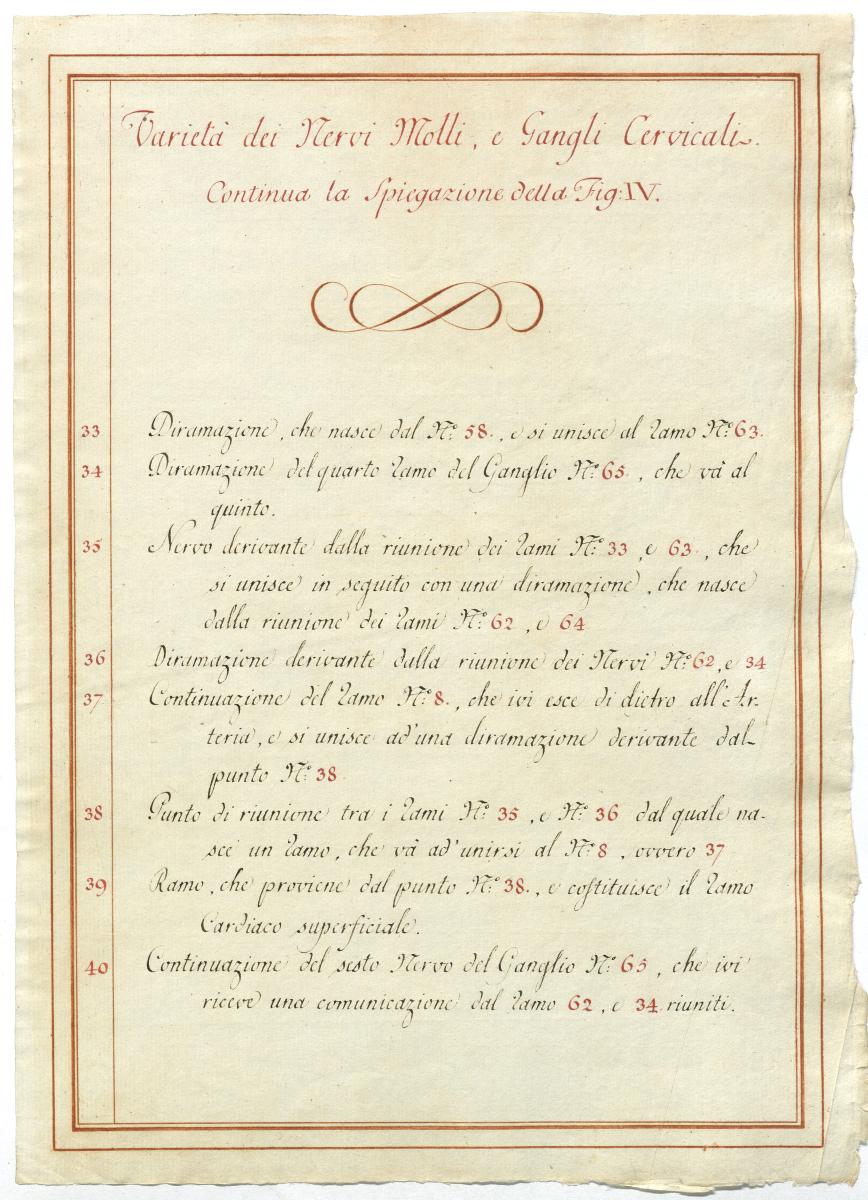 Varietà dei Nervi Molli, e Gangli Cervicali.
Continua la Spiegazione della Fig: IV.
33 Diramazione, che nasce dal N.° 58., e si unisce al ramo N.° 63.
34 Diramazione del quarto ramo del Ganglio N.° 65., che và al
quinto.
35 Nervo derivante dalla riunione dei rami N.° 33, e 63., che
si unisce in seguito con una diramazione, che nasce
dalla riunione dei rami N.° 62, e 64
36 Diramazione derivante dalla riunione dei Nervi N.° 62, e 34
37 Continuazione del ramo N.° 8., che ivi esce di dietro all'Ar-
teria, e si unisce ad'una diramazione derivante dal
punto N.° 38.
38 Punto di riunione tra i rami N.° 35, e N.° 36 dal quale na-
sce un ramo, che và ad'unirsi al N.° 8, ovvero 37
39 Ramo, che proviene dal punto N.° 38., e costituisce il ramo
Cardiaco superficiale.
40 Continuazione del sesto Nervo del Ganglio N.° 65, che ivi
riceve una comunicazione dal ramo 62, e 34 riuniti.